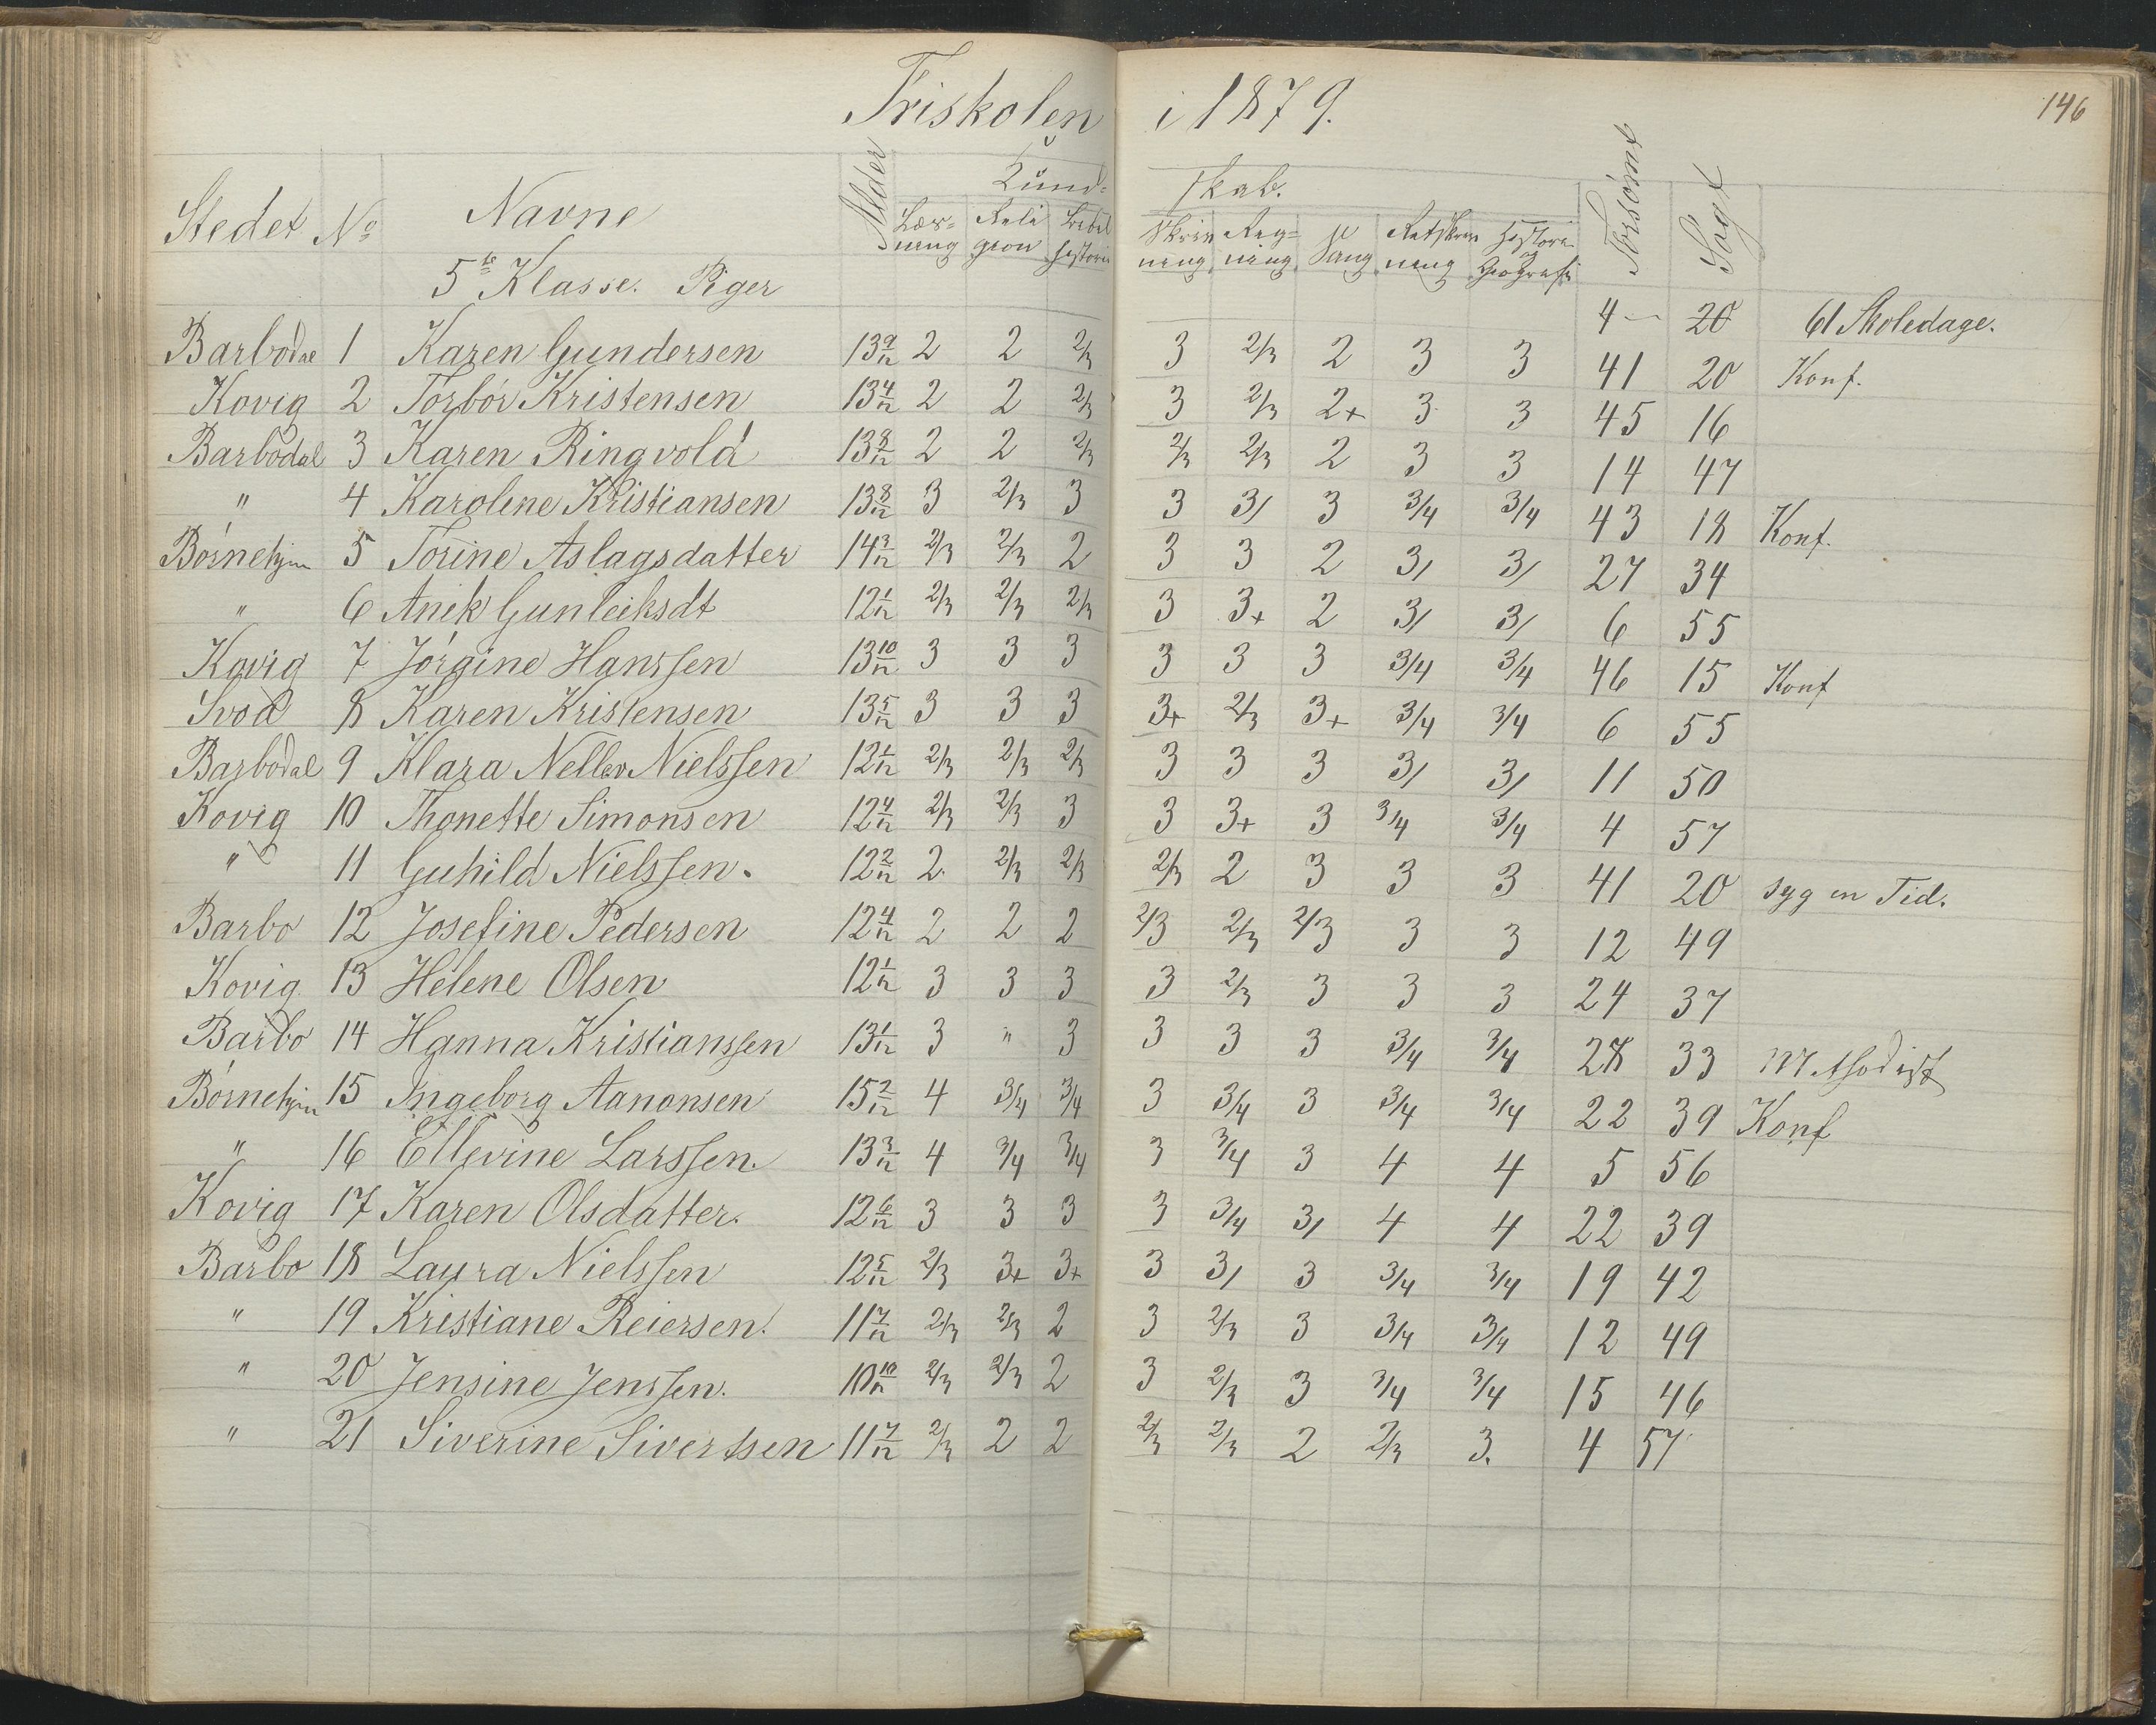 Friskolen i 1879.
146
Stedet No Navne Alder Kund- skab. Forsømt Søgt
Læs- ning Reli gion Bibel historie Skriv ning Reg- ning Sang Retskriv ning Historie og Geografi
5te Klasse. Piger
4 — 20 61 Skoledage.
Barbodal 1 Karen Gundersen 13 9/12 2 2 2/3 3 2/3 2 3 3 41 20 Konf.
Kovig 2 Torbór Kristensen 13 4/12 2 2 2/3 3 2/3 2+ 3 3 45 16
Barbodal 3 Karen Ringvold 13 8/12 2 2 2/3 2/3 2/3 2 3 3 14 47
" 4 Karoline Kristiansen 13 8/12 3 2/3 3 3 3/ 3 3/4 3/4 43 18 Konf.
Børnehjm 5 Torine Aslagsdatter 14 3/12 2/3 2/3 2 3 3 2 3/ 3/ 27 34
" 6 Anek Gunleiksdt 12 1/12 2/3 2/3 2/3 3 3+ 2 3/ 3/ 6 55
Kovig 7 Jørgine Hanssen 13 10/12 3 3 3 3 3 3 3/4 3/4 46 15 Konf
Svod 8 Karen Kristensen 13 5/12 3 3 3 3+ 2/3 3+ 3/4 3/4 6 55
Barbodal 9 Klara Nielssen 12 1/12 2/3 2/3 2/3 3 3 3 3/ 3/ 11 50
Kovig 10 Thonette Simonsen 12 4/12 2/3 2/3 3 3 3+ 3 3/4 3/4 4 57
" 11 Guhild Nielssen. 12 2/12 2. 2/3 2/3 2/3 2 3 3 3 41 20 syg en Tid.
Barbo 12 Josefine Pedersen 12 4/12 2 2 2 2/3 2/3 2/3 3 3 12 49
Kovig 13 Helene Olsen 12 1/12 3 3 3 3 2/3 3 3 3 24 37
Barbo 14 Hanna Kristianssen 13 1/12 3 " 3 3 3 3 3/4 3/4 28 33 Methodist
Børnehjm 15 Ingeborg Aanonsen 15 2/12 4 3/4 3/4 3 3/4 3 3/4 3/4 22 39 Konf
" 16 Ellevine Larssen. 13 3/12 4 3/4 3/4 3 3/4 3 4 4 5 56
Kovig 17 Karen Olsdatter. 12 6/12 3 3 3 3 3/4 3/ 4 4 22 39
Barbo 18 Laura Nielssen 12 5/12 2/3 3+ 3+ 3 3/ 3 3/4 3/4 19 42
" 19 Kristiane Reiersen. 11 7/12 2/3 2/3 2 3 2/3 3 3/4 3/4 12 49
" 20 Jensine Jenssen. 10 10/12 2/3 2/3 2 3 2/3 3 3/4 3/4 15 46
" 21 Siverine Sivertsen 11 7/12 2/3 2 2 2/3 2/3 2 2/3 3. 4 57